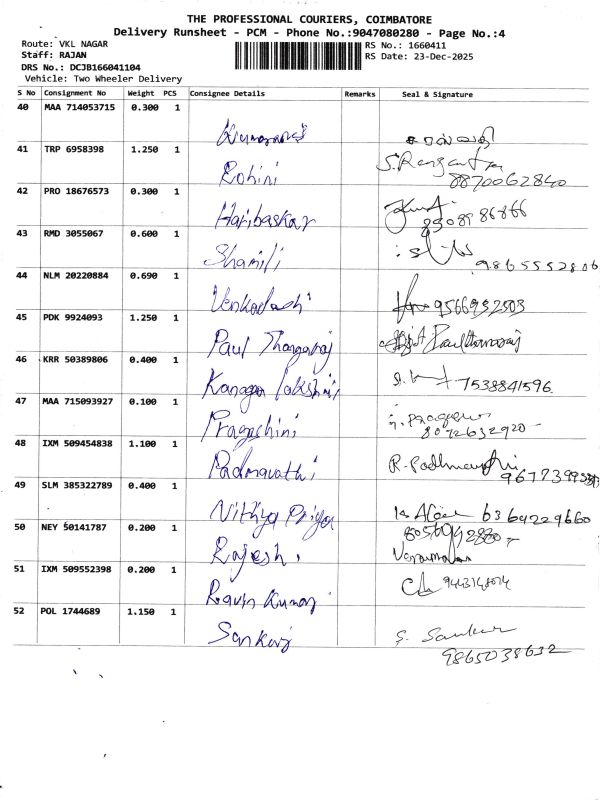 THE PROFESSIONAL COURIERS, COIMBATORE
Delivery Runsheet - PCM - Phone No.:9047080280 - Page No.:4
Route: VKL NAGAR
RS No.: 1660411
Staff: RAJAN
RS Date: 23-Dec-2025
DRS No.: DCJB166041104
Vehicle: Two Wheeler Delivery
S No Consignment No Weight PCS Consignee Details Remarks Seal & Signature
40 MAA 714053715 0.300 1
41 TRP 6958398 1.250 1 Rohini 8870062840
42 PRO 18676573 0.300 1 Haribaskar
43 RMD 3055067 0.600 1 Shamili 9865552806
44 NLM 20220884 0.690 1 9566932503
45 PDK 9924093 1.250 1 Paul Thangaraj
46 KRR 50389806 0.400 1 Kanaga lakshmi 7538841596
47 MAA 715093927 0.100 1 Pragashini 8072632920
48 IXM 509454838 1.100 1 Padmavathi R. Padmavathi
49 SLM 385322789 0.400 1 Nithya Priya 6364229660
50 NEY 50141787 0.200 1 Rajesh
51 IXM 509552398 0.200 1 Ravin Kumar
52 POL 1744689 1.150 1 Sankar S. Sankar
9865038632